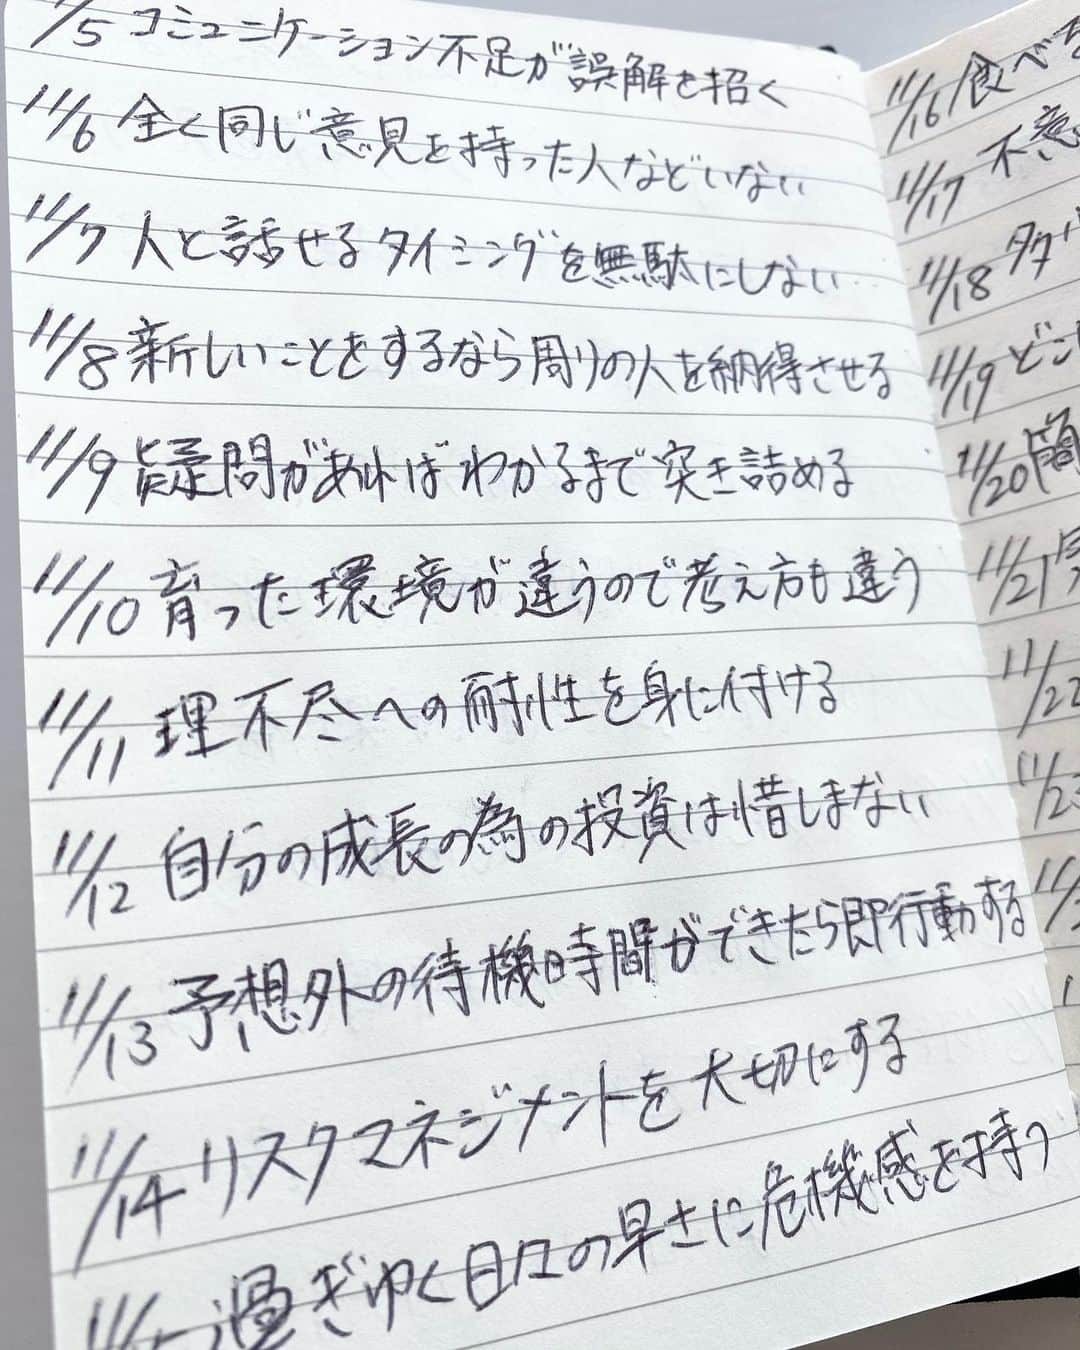 /5 コミュニケーション不足が誤解を招く
11/6 全く同じ意見を持った人などいない
11/7 人と話せるタイミングを無駄にしない
11/8 新しいことをするなら周りの人を納得させる
11/9 疑問があればわかるまで突き詰める
11/10 育った環境が違うので考え方も違う
11/11 理不尽への耐性を身に付ける
11/12 自分の成長の為の投資は惜しまない
11/13 予想外の待機時間ができたら即行動する
11/14 リスクマネジメントを大切にする
11/ 過ぎゆく日々の早さに危機感を持つ
11/16 食べ
11/17 不意
11/18
11/19 どこ
11/20
11/21
11/22
11/2